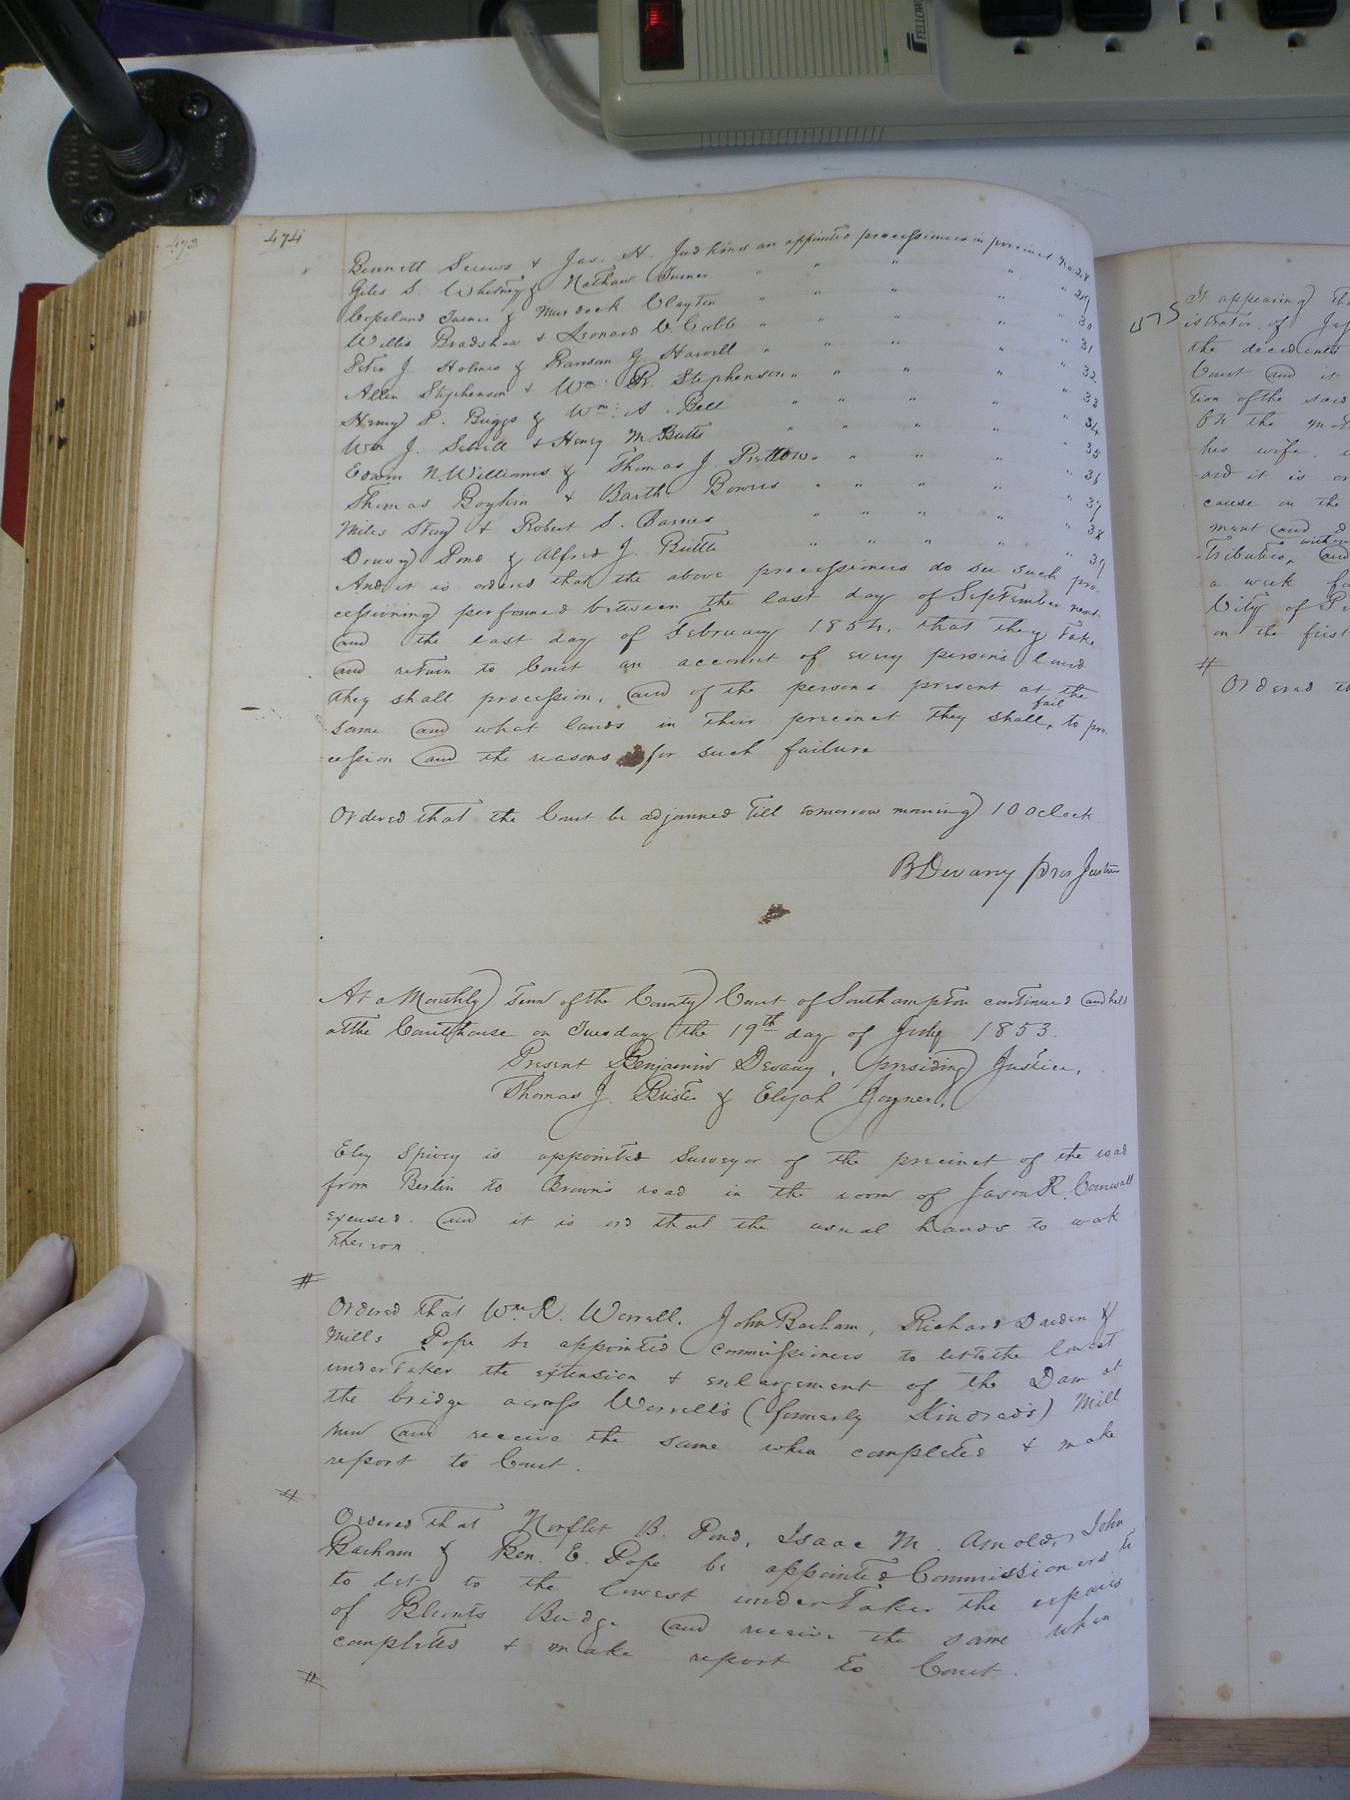 FELLOWES
473
474
Bennett & Jas. H. Judkins are appointed processioners in precinct No. 28
Giles S. Whitney & Nathan Turner " " " " " 29
Copeland Turner & Murdock Clayton " " " " " 30
Willis Bradshaw & Leonard C Cobb " " " " " 31
Peter J. Holmes & Ransom G. Harvill " " " " " 32
Allen Stephenson & Wm: R. Stephenson " " " " " 33
Henry P. Briggs & Wm: A. Bell " " " " " 34
Wm J. Sebrell & Henry M Butts " " " " " 35
Edwin N. Williams & Thomas J Pretlow " " " " " 36
Thomas Boykin & Barth Bowers " " " " " 37
Miles Story & Robert S. Barnes " " " " " 38
Drury Pond & Alfred J. Britt " " " " " 39
And it is ordered that the above processioners do see such pro-
cessioning performed between the last day of September next
and the last day of February 1854, that they take
and return to Court an account of every persons land
they shall procession, and of the persons present at the
same and what lands in their precinct they shall fail to pro-
cession and the reasons for such failure
Ordered that the Court be adjourned till tomorrow morning 10 Oclock
B Devany pres Justice
At a Monthly Term of the County Court of Southampton continued and held
at the Courthouse on Tuesday the 19th day of July 1853.
Present Benjamin Devany, presiding Justice,
Thomas J. Brister & Elijah Joyner,
Ely Spivey is appointed Surveyor of the precinct of the road
from Berlin to Browns road in the room of Jason R. Cornwall
excused. and it is ord that the usual hands to work
thereon.
#
Ordered that Wm R. Worrell, John Barham, Richard Darden &
Mills Pope be appointed commissioners to let to the lowest
undertaker the extension & enlargement of the Dam at
the bridge across Worrell's (formerly Kindred's) Mill
run and receive the same when completed & make
report to Court.
#
Ordered that Norflet B. Pond, Isaac M. Arnold, John
Barham & Ben. E. Pope be appointed Commissioners to
to let to the lowest undertaker the repairs
of Blunts Bridge and receive the same when
completed & make report to Court.
#
475
It appearing th
istrator of Jef
the decedents
Court and it
tion of the said
On the mo
his wife.
and it is or
cause on the
ment and d
tributed and
a week for
City of P
on the first
#
Ordered th